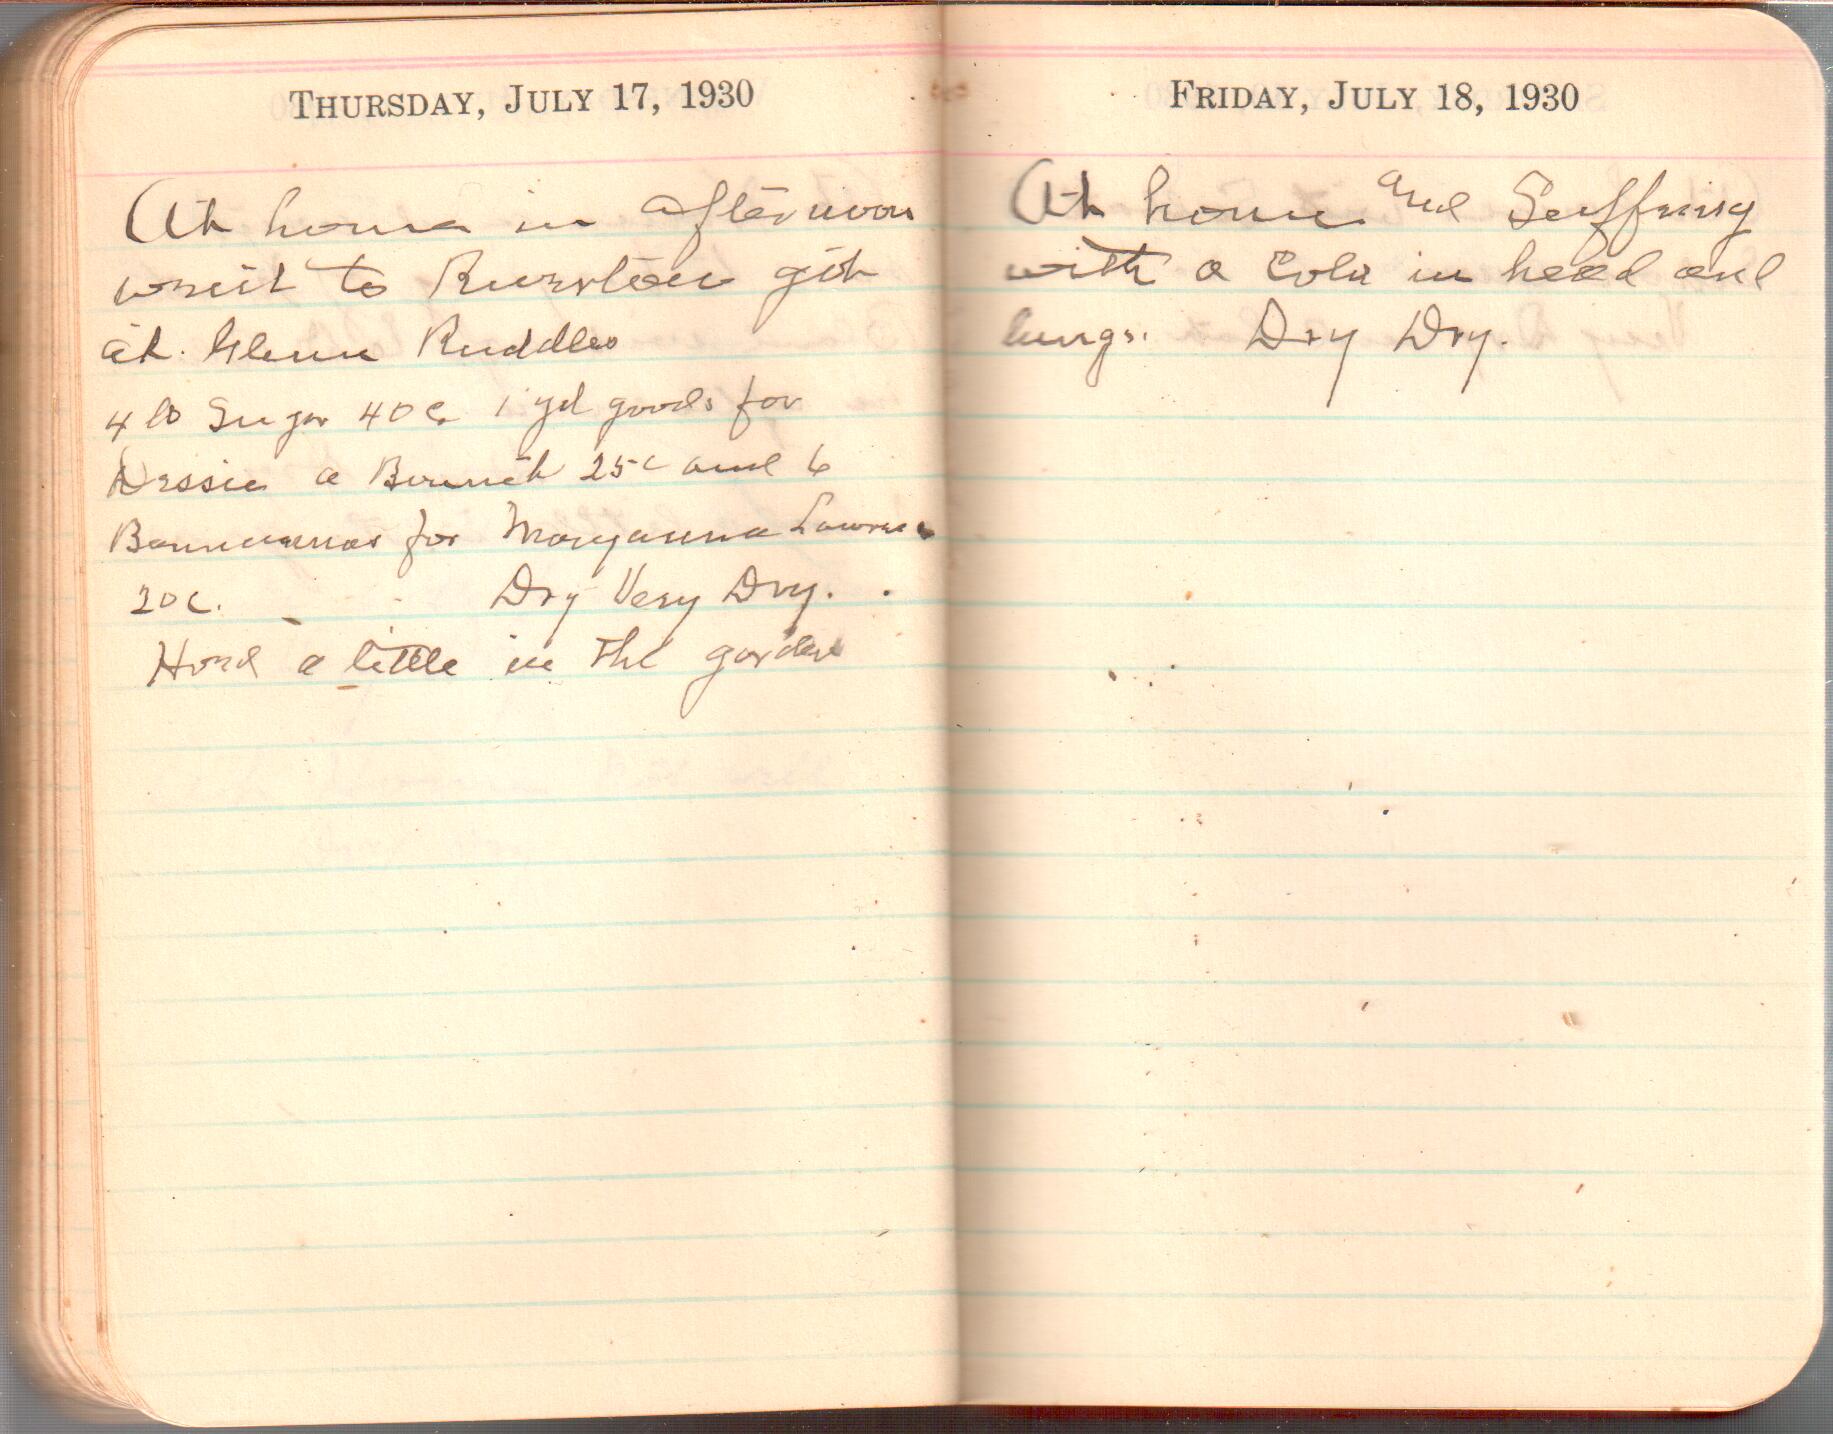 THURSDAY, JULY 17, 1930
At home in afternoon
went to got
at. Glenn Ruddles
4 lb Sugar 40c 1 yd goods for
Dessie a Bonnet 25c and 6
for Maryanna
20c. Dry Very Dry.
Hoed a little in the garden
FRIDAY, JULY 18, 1930
At home and Suffring
with a Cold in head and
lungs. Dry Dry.